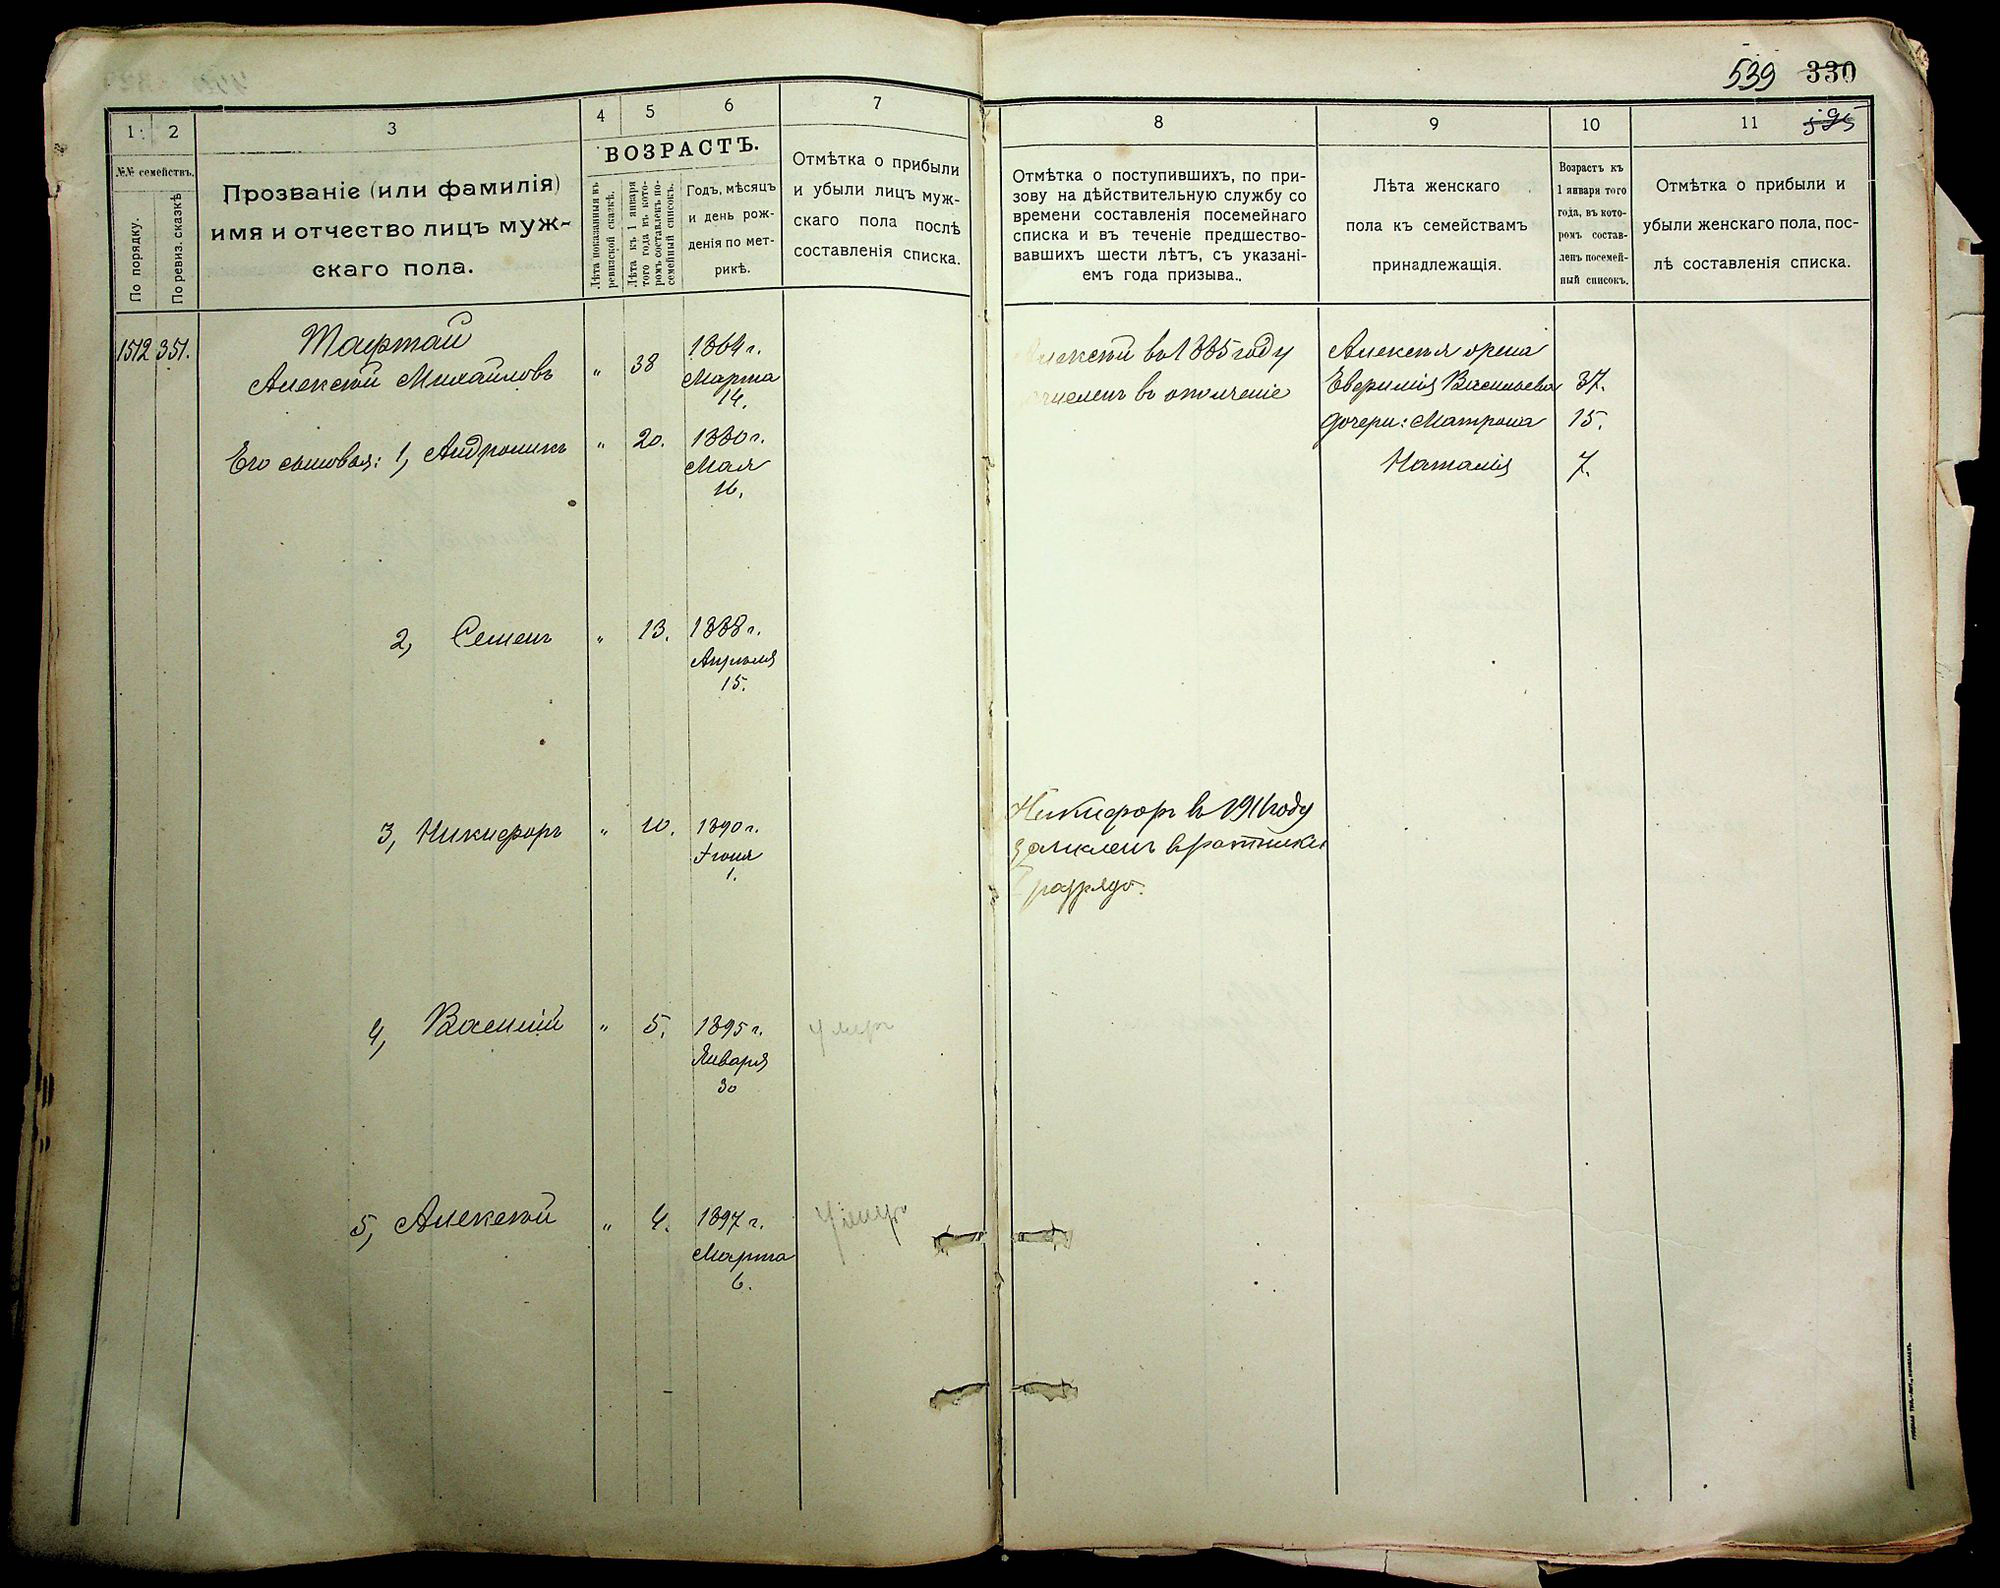 539 330
595
1
2
3
4
5
6
7
№№ семействъ.
По порядку.
По ревиз. сказкѣ
Прозваніе (или фамилія)
имя и отчество лицъ муж-
скаго пола.
ВОЗРАСТЪ.
Лѣта показанныя въ
ревизской сказкѣ.
Лѣта къ 1 января
того года въ кото-
ромъ составленъ по-
семейный списокъ.
Годъ, мѣсяцъ
и день рож-
денія по мет-
рикѣ.
Отмѣтка о прибыли
и убыли лицъ муж-
скаго пола послѣ
составленія списка.
1512 351.
Тафтай
Алексѣй Михайловъ " 38 1864 г.
Марта
14.
Его сыновья: 1, Андроникъ " 20. 1880 г.
Мая
16.
2, Семенъ " 13. 1888 г.
Апрѣля
15.
3, Никифоръ " 10. 1890 г.
Іюня
1.
4, Василій " 5. 1895 г. Умеръ
Января
30
5, Алексѣй " 4. 1897 г. Умеръ
Марта
6.
8
9
10
11
Отмѣтка о поступившихъ, по при-
зову на дѣйствительную службу со
времени составленія посемейнаго
списка и въ теченіе предшество-
вавшихъ шести лѣтъ, съ указані-
емъ года призыва.
Лѣта женскаго
пола къ семействамъ
принадлежащія.
Возрастъ къ
1 января того
года, въ кото-
ромъ состав-
ленъ посемей-
ный списокъ.
Отмѣтка о прибыли и
убыли женскаго пола, пос-
лѣ составленія списка.
Алексѣй въ 1885 году
зачисленъ въ ополченіе
Алексѣя жена
Евфимія Васильева 37.
дочери: Матрона 15.
Наталія 7.
Никифоръ въ 1911 году
зачисленъ въ ратники
разряда.